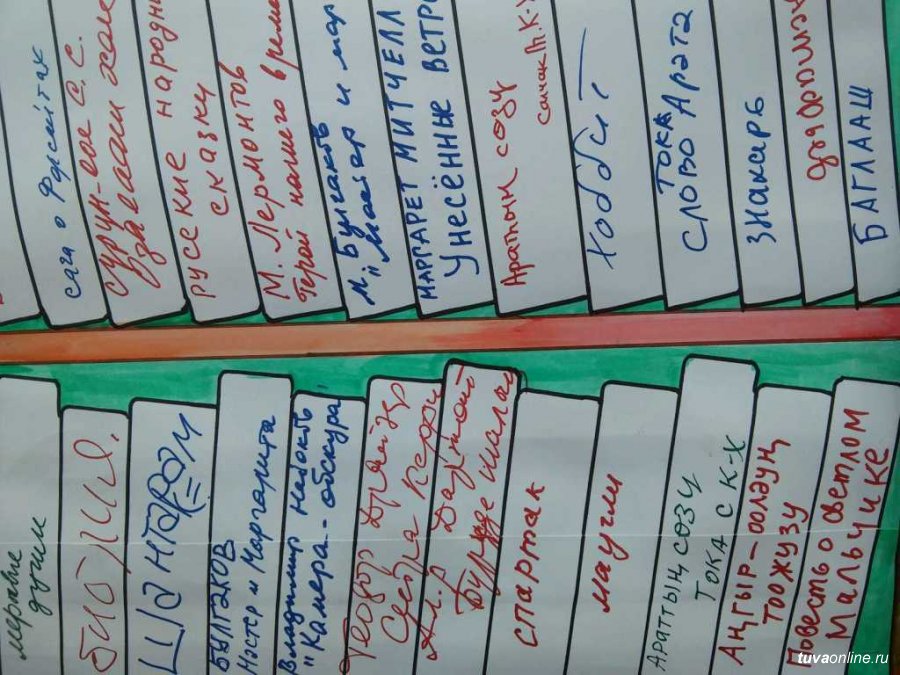 сага о Форсайтах
Сурун-оол С.С.
руские народн
сказки
М. Лермонтов
Герой нашего време
М. Булгаков
"Мастер и мар
МАРГАРЕТ МИТЧЕЛЛ
Унесённые ветро
Аратын созу
Хоббит
ТОКА
СЛОВО Арата
Знахарь
БАГЛААШ
мертвые
души
БИБЛИЯ.
ШАНТАРАМ
БУЛГАКОВ
Мастер и Маргарита
Владимир Набоков
"Камера-обскура"
Теодор Драйзер
Сестра Керри
спартак
маугли
АРАТЫҢ СӨЗҮ
ТОКА С К-Х
АҢГЫР-ООЛДУҢ
ТООЖУЗУ
Повесть о светлом
Мальчике
tuvaonline.ru